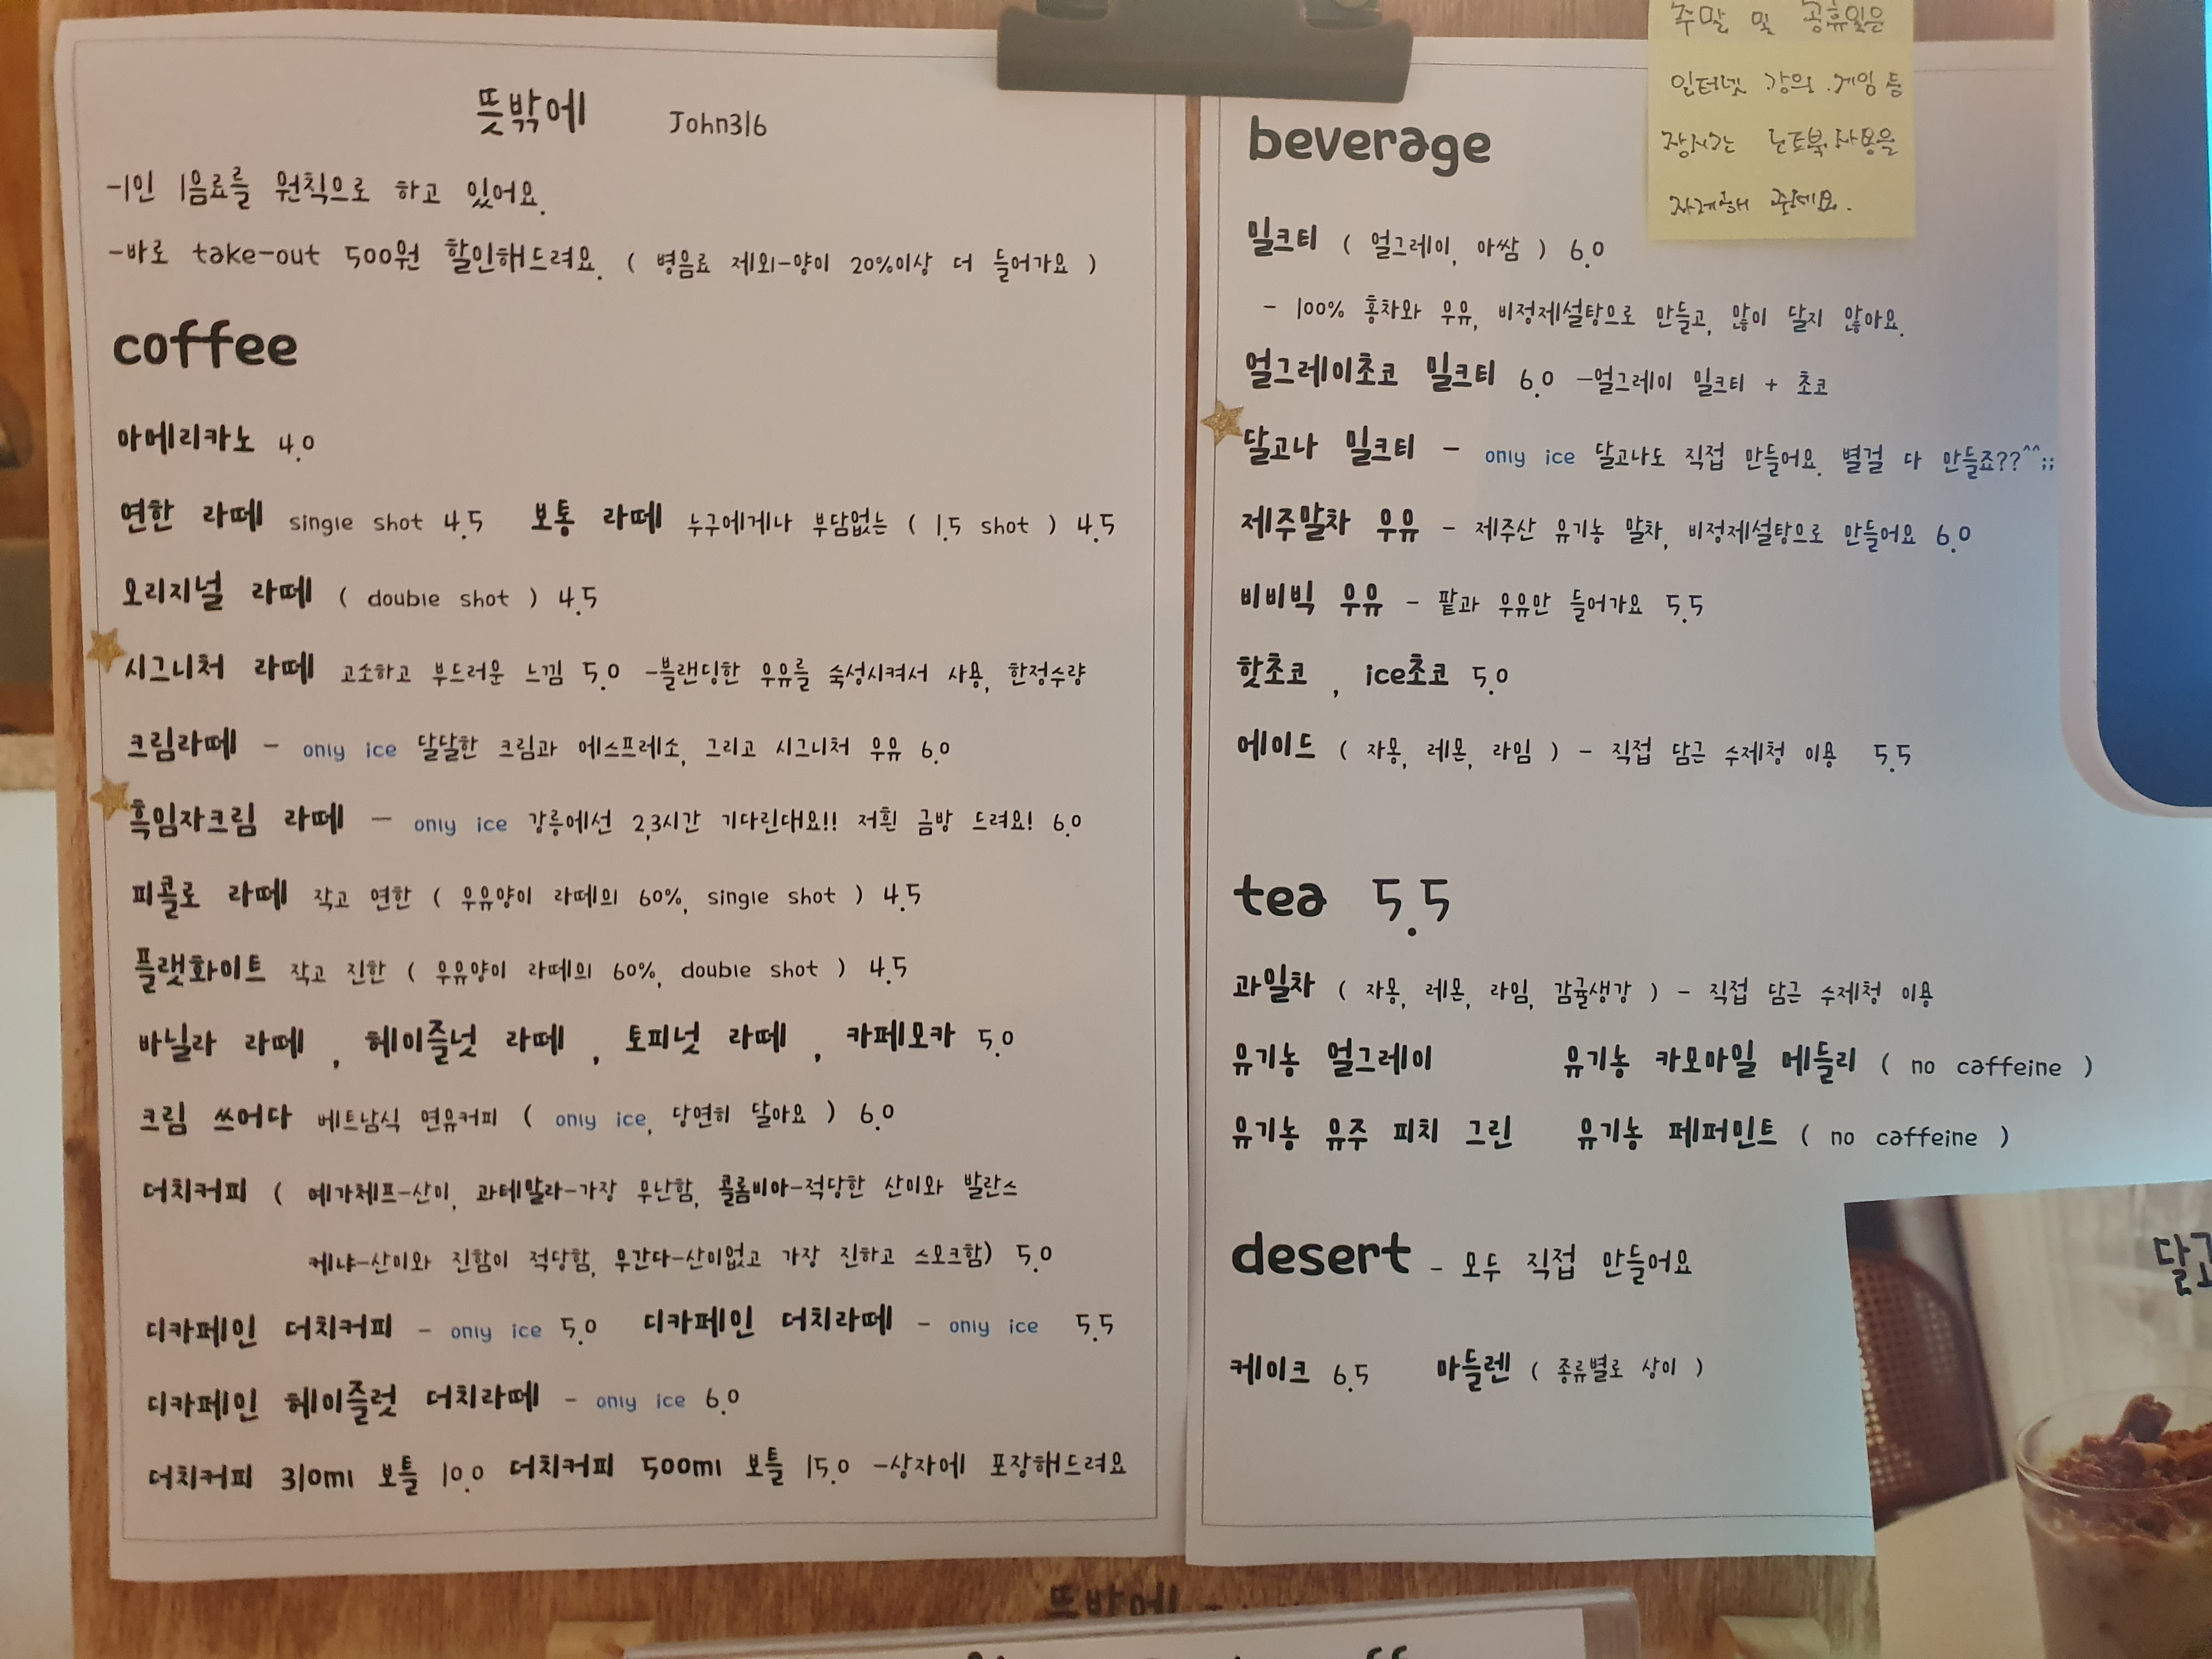 뜻밖에 John316
-1인 1음료를 원칙으로 하고 있어요.
-바로 take-out 500원 할인해드려요. ( 병음료 제외-양이 20%이상 더 들어가요 )
coffee
아메리카노 4.0
연한 라떼 single shot 4.5 보통 라떼 누구에게나 부담없는 ( 1.5 shot ) 4.5
오리지널 라떼 ( double shot ) 4.5
시그니처 라떼 고소하고 부드러운 느낌 5.0 -블랜딩한 우유를 숙성시켜서 사용, 한정수량
크림라떼 - only ice 달달한 크림과 에스프레소, 그리고 시그니처 우유 6.0
흑임자크림 라떼 - only ice 강릉에선 2,3시간 기다린대요!! 저흰 금방 드려요! 6.0
피콜로 라떼 작고 연한 ( 우유양이 라떼의 60%, single shot ) 4.5
플랫화이트 작고 진한 ( 우유양이 라떼의 60%, double shot ) 4.5
바닐라 라떼 , 헤이즐넛 라떼 , 토피넛 라떼 , 카페모카 5.0
크림 쓰어다 베트남식 연유커피 ( only ice, 당연히 달아요 ) 6.0
더치커피 ( 예가체프-산미, 과테말라-가장 무난함, 콜롬비아-적당한 산미와 발란스
케냐-산미와 진함이 적당함, 우간다-산미없고 가장 진하고 스모크함) 5.0
디카페인 더치커피 - only ice 5.0 디카페인 더치라떼 - only ice 5.5
디카페인 헤이즐럿 더치라떼 - only ice 6.0
더치커피 310ml 보틀 10.0 더치커피 500ml 보틀 15.0 -상자에 포장해드려요
주말 및 공휴일은
인터넷 강의.게임 등
장시간 노트북사용을
자제해 주세요.
beverage
밀크티 ( 얼그레이, 아쌈 ) 6.0
- 100% 홍차와 우유, 비정제설탕으로 만들고, 많이 달지 않아요.
얼그레이초코 밀크티 6.0 -얼그레이 밀크티 + 초코
달고나 밀크티 - only ice 달고나도 직접 만들어요. 별걸 다 만들죠??^^;;
제주말차 우유 - 제주산 유기농 말차, 비정제설탕으로 만들어요 6.0
비비빅 우유 - 팥과 우유만 들어가요 5.5
핫초코 , ice초코 5.0
에이드 ( 자몽, 레몬, 라임 ) - 직접 담근 수제청 이용 5.5
tea 5.5
과일차 ( 자몽, 레몬, 라임, 감귤생강 ) - 직접 담근 수제청 이용
유기농 얼그레이 유기농 카모마일 메들리 ( no caffeine )
유기농 유주 피치 그린 유기농 페퍼민트 ( no caffeine )
desert - 모두 직접 만들어요
케이크 6.5 마들렌 ( 종류별로 상이 )
달고
뜨밖에